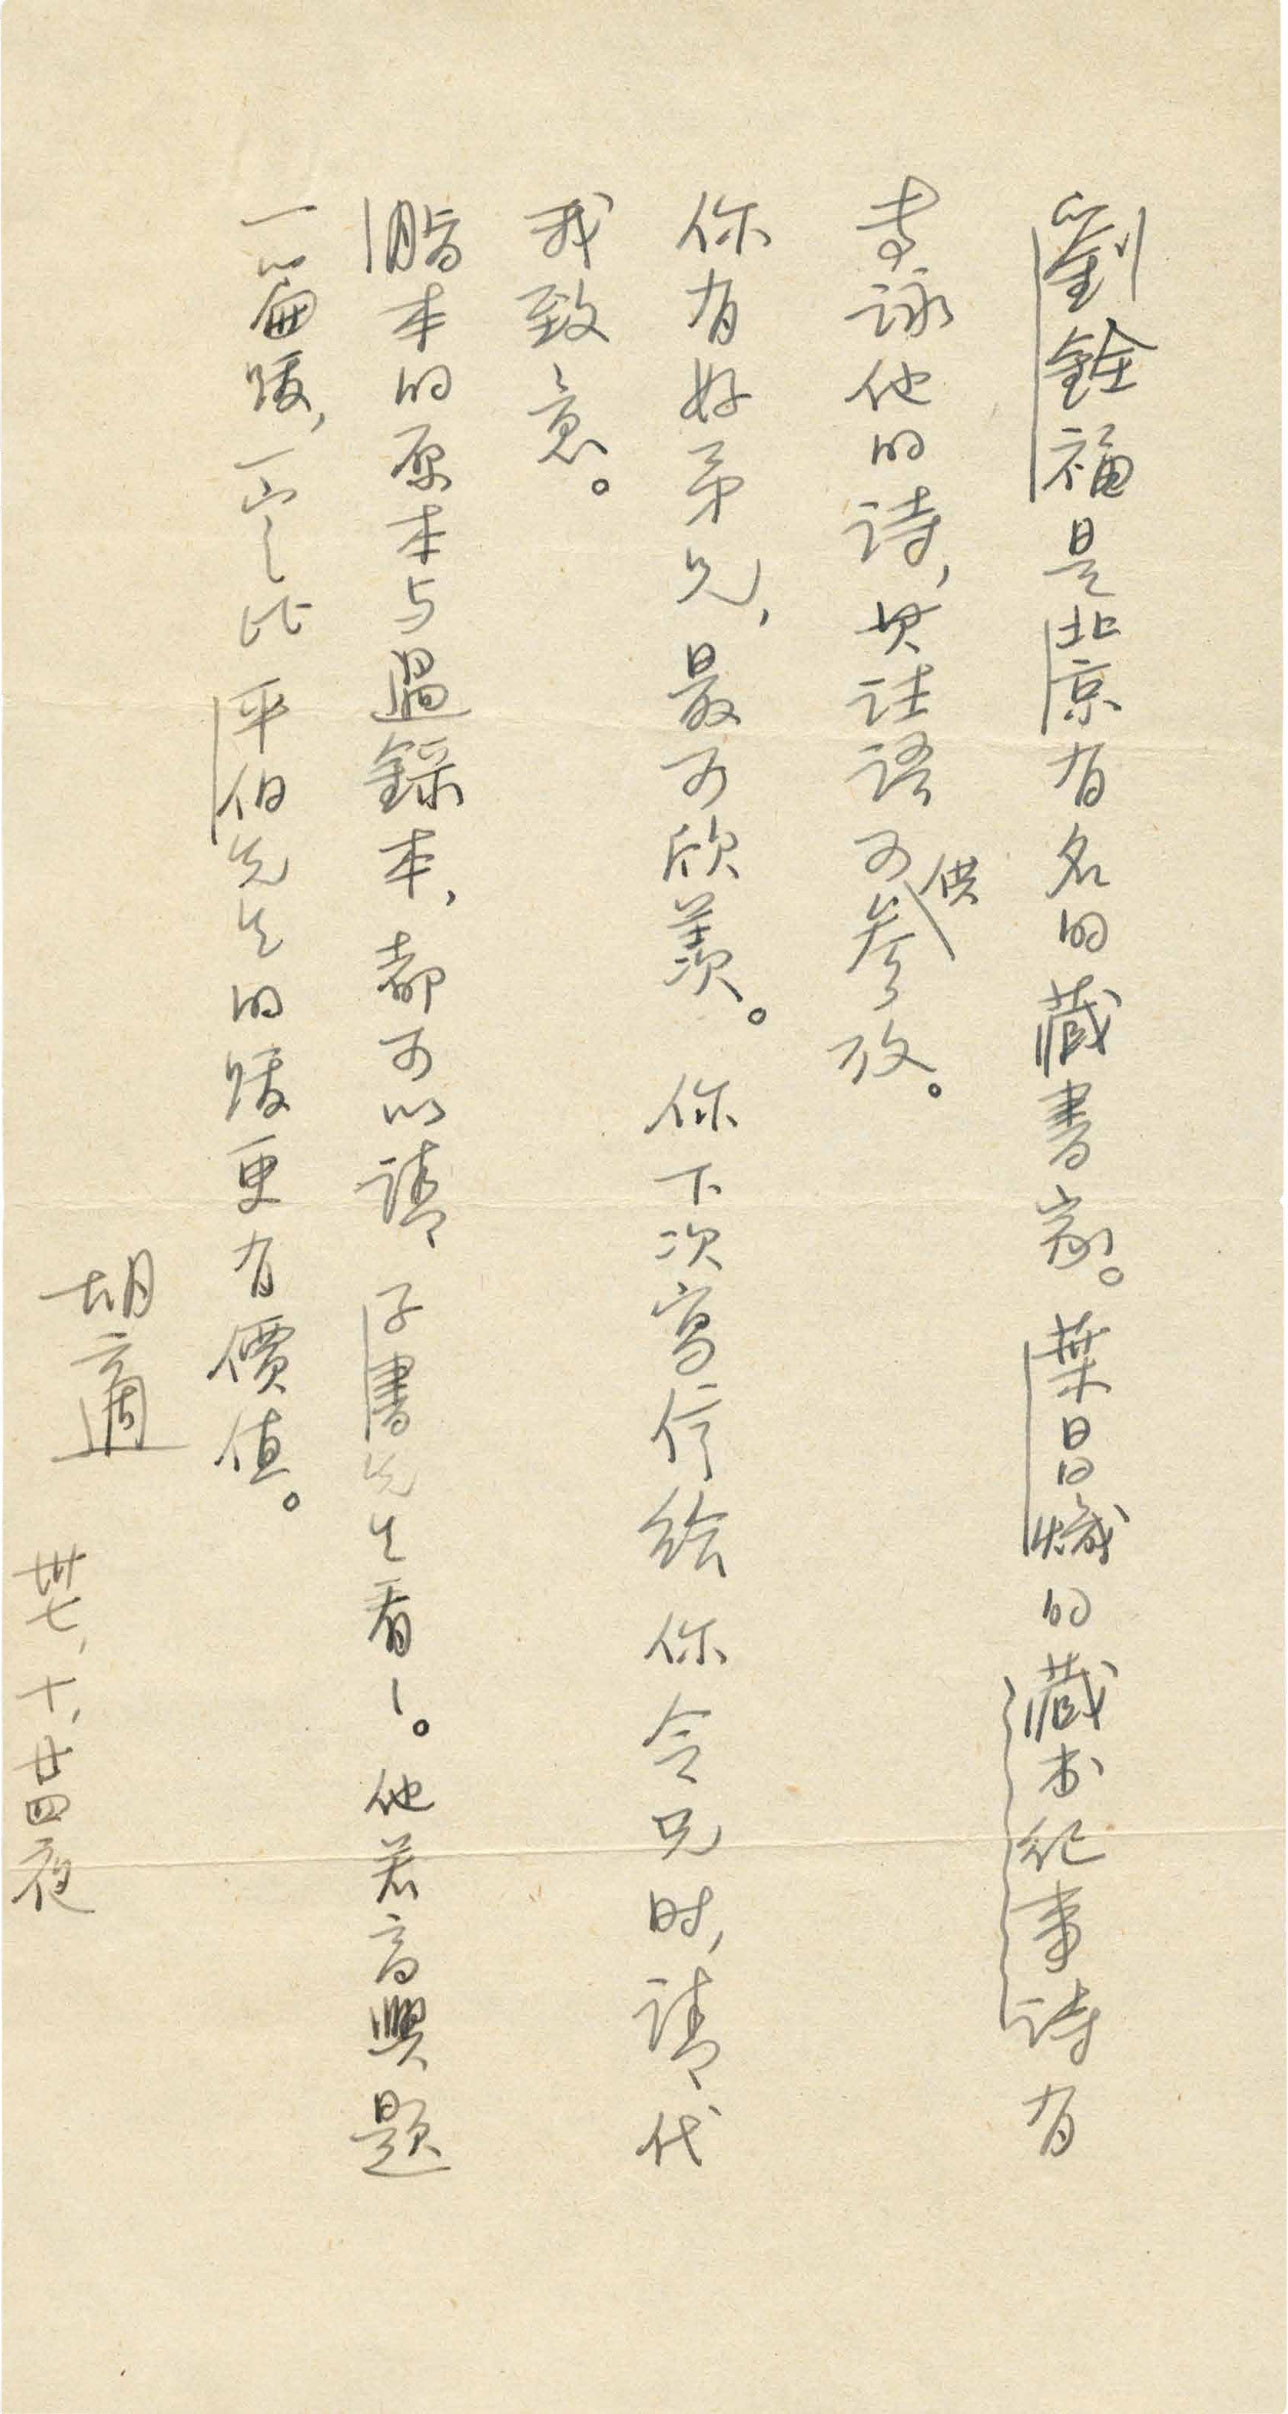 劉銓福是北京有名的藏書家。葉昌熾的藏书紀事詩有
專詠他的詩，其註語可供參攷。
你有好弟兄，最可欣羨。你下次寫信給你令兄时，請代
我致意。
脂本的原本与過錄本，都可以請子書先生看看。他若高興題
一篇跋，一定比平伯先生的跋更有價值。
胡適
卅七，十，廿四夜